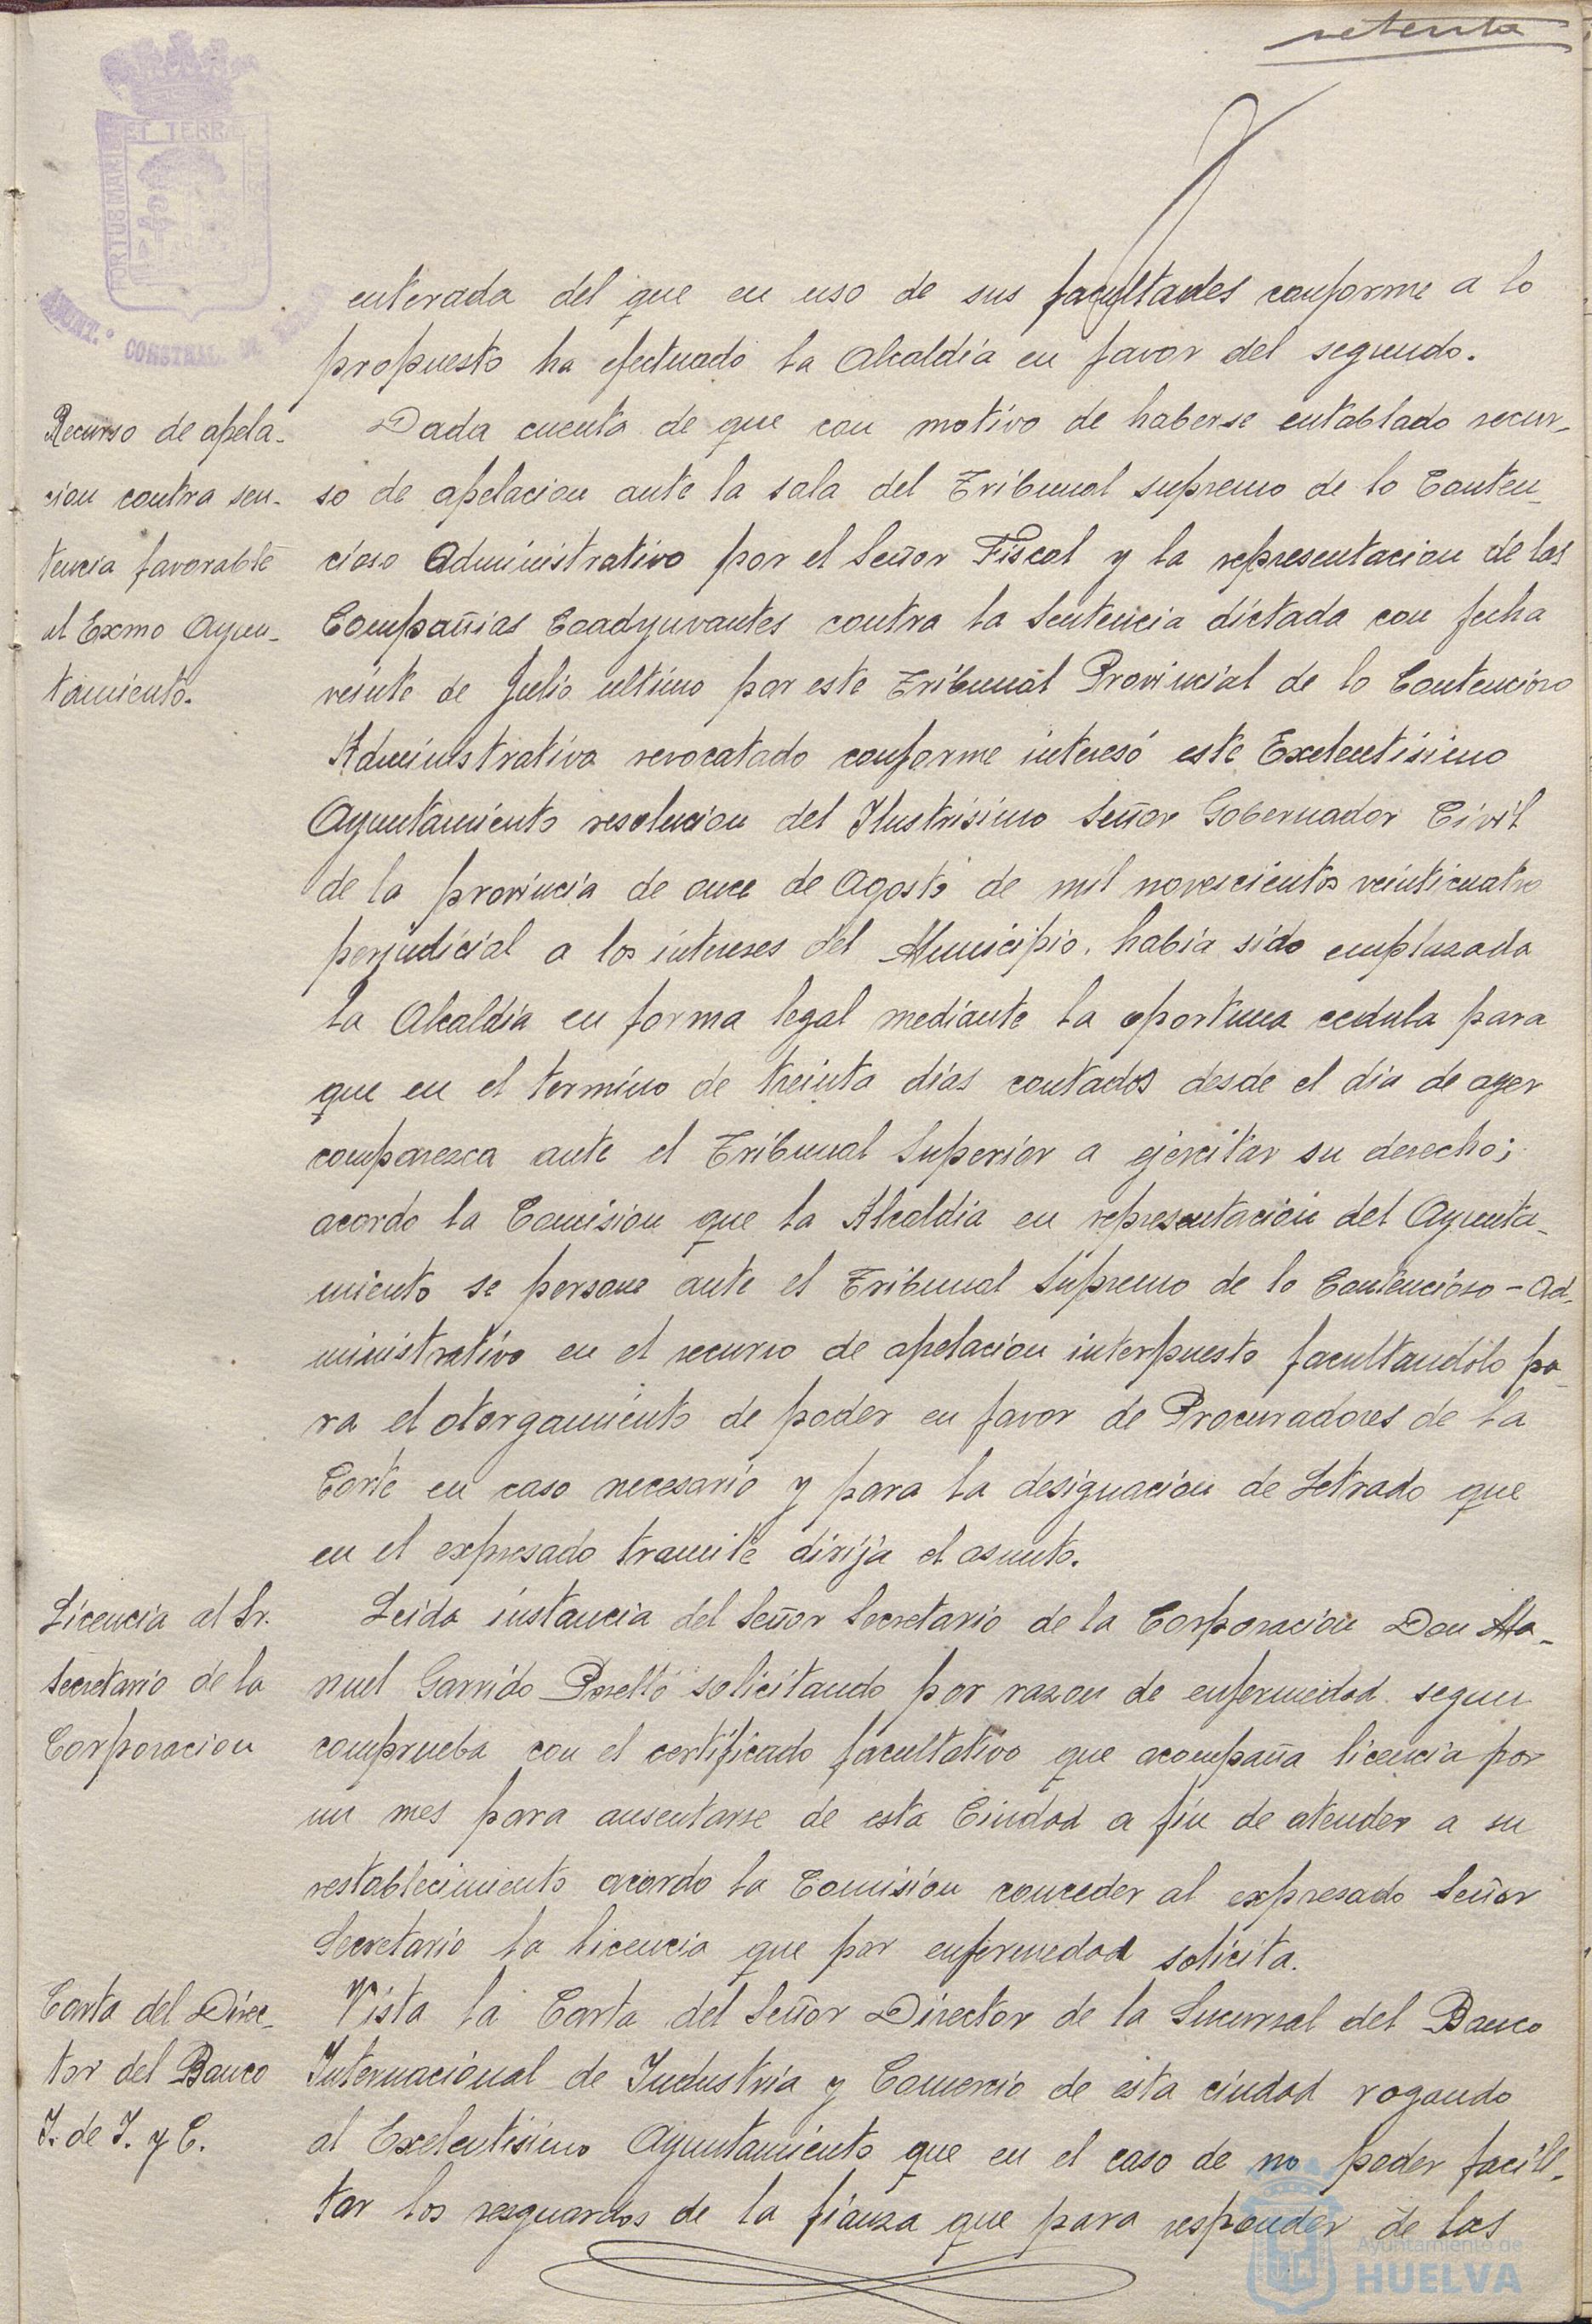 setenta
enterada del que en uso de sus facultades conforme a lo
propuesto ha efectuado la Alcaldía en favor del segundo.
Recurso de apela-
cion contra sen-
tencia favorable
al Exmo Ayun-
tamiento.
Dada cuenta de que con motivo de haberse entablado recur-
so de apelacion ante la sala del Tribunal supremo de lo Conten-
cioso Administrativo por el Señor Fiscal y la representacion de las
Compañias Coadyuvantes contra la Sentencia dictada con fecha
veinte de Julio ultimo por este Tribunal Provincial de lo Contencioso
Administrativo revocatado conforme interesó este Exelentisimo
Ayuntamiento resolucion del Ilustrisimo Señor Gobernador Civil
de la provincia de once de Agosto de mil novescientos veinticuatro
perjudicial a los intereses del Municipio, habia sido emplazada
la Alcaldia en forma legal mediante la oportuna cedula para
que en el termino de treinta dias contados desde el dia de ayer
comparezca ante el Tribunal Superior a ejercitar su derecho;
acordo la Comision que la Alcaldia en representación del Ayunta-
miento se persone ante el Tribunal Supremo de lo Contencioso-Ad-
ministrativo en el recurso de apelacion interpuesto facultandolo pa-
ra el otorgamiento de poder en favor de Procuradores de la
Corte en caso necesario y para la designacion de Letrado que
en el expresado tramite dirija el asunto.
Licencia al Sr.
Secretario de la
Corporacion
Leida instancia del Señor Secretario de la Corporacion Don Ma-
nuel Garrido Perelló solicitando por razon de enfermedad segun
comprueba con el certificado facultativo que acompaña licencia por
un mes para ausentarse de esta Ciudad a fin de atender a su
restablecimiento acordo la Comision conceder al expresado Señor
Secretario la licencia que por enfermedad solicita.
Carta del Direc-
tor del Banco
I. de I. y C.
Vista la Carta del Señor Director de la Sucursal del Banco
Internacional de Industria y Comercio de esta ciudad rogando
al Exelentisimo Ayuntamiento que en el caso de no poder facili-
tar los resguardos de la fianza que para responder de las
PORTUS MARIS ET TERRAE
Ayuntamiento de
HUELVA